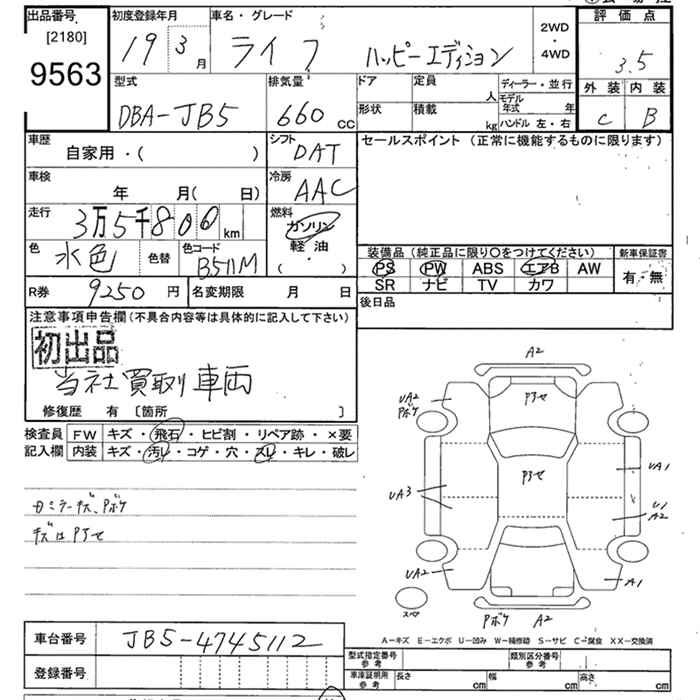 出品番号
[2180]
9563
初度登録年月
19 3 月
車名・グレード
ライフ ハッピーエディション
2WD
・
4WD
評価点
3.5
外装 内装
C B
型式
DBA-JB5
排気量
660 CC
ドア
定員
人
形状
積載
kg
ディーラー・並行
モデル
年式 年
ハンドル 左・右
車歴
自家用・( )
シフト
DAT
セールスポイント (正常に機能するものに限ります)
車検
年 月( 日)
冷房
AAC
走行
3万5千800 km
燃料
ガソリン
軽油
( ・ )
色
水色
色替
色コード
B511M
装備品(純正品に限り○をつけてください)
新車保証書
PS PW ABS エアB AW
SR ナビ TV カワ
有・無
R券 9250 円
名変期限 月 日
後日品
注意事項申告欄(不具合内容等は具体的に記入して下さい)
初出品
当社買取り車両
修復歴 有 〔箇所 〕
検査員
記入欄
FW キズ・飛石・ヒビ割・リペア跡・×要
内装 キズ・汚レ・コゲ・穴・スレ・キレ・破レ
キズはPアセ
A2
Pアセ
UA2
Pボケ
Pアセ
UA1
UA3
U1
A2
UA2
A1
スペア
Pボケ A2
A-キズ E-エクボ U-凹み W-補修跡 S-サビ C-腐食 XX-交換済
車台番号
JB5-4745112
登録番号
型式指定番号
参考
類別区分番号
参考
車庫証明用
参考
長さ cm
幅 cm
高さ cm